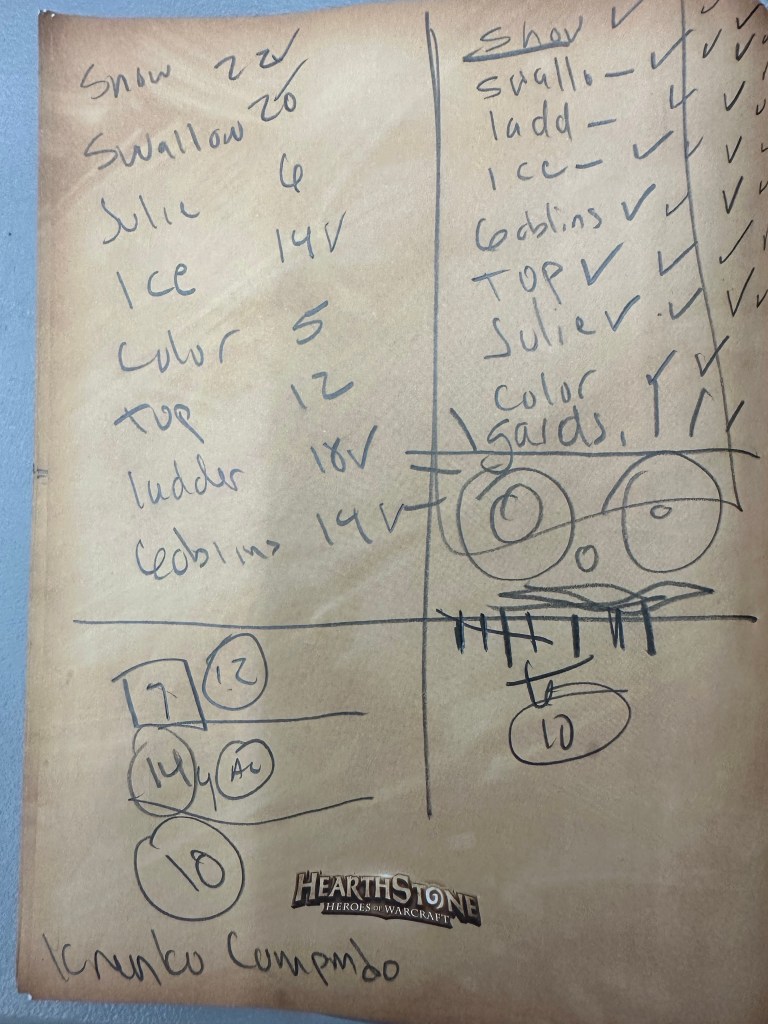 Snow 22✓
Swallow 20
Julie 6
Ice 14✓
Color 5
top 12
ladder 18✓
Goblins 14✓
7 12
14 4 AC
10
Snow ✓ ✓ ✓
swallo – ✓ ✓ ✓
ladd – ✓ ✓
Ice – ✓ ✓ ✓
Goblins ✓ ✓ ✓
Top ✓ ✓ ✓
Julie ✓ ✓ ✓
color ✓ ✓
gards.
to
10
HEARTHSTONE
HEROES OF WARCRAFT
Krenko